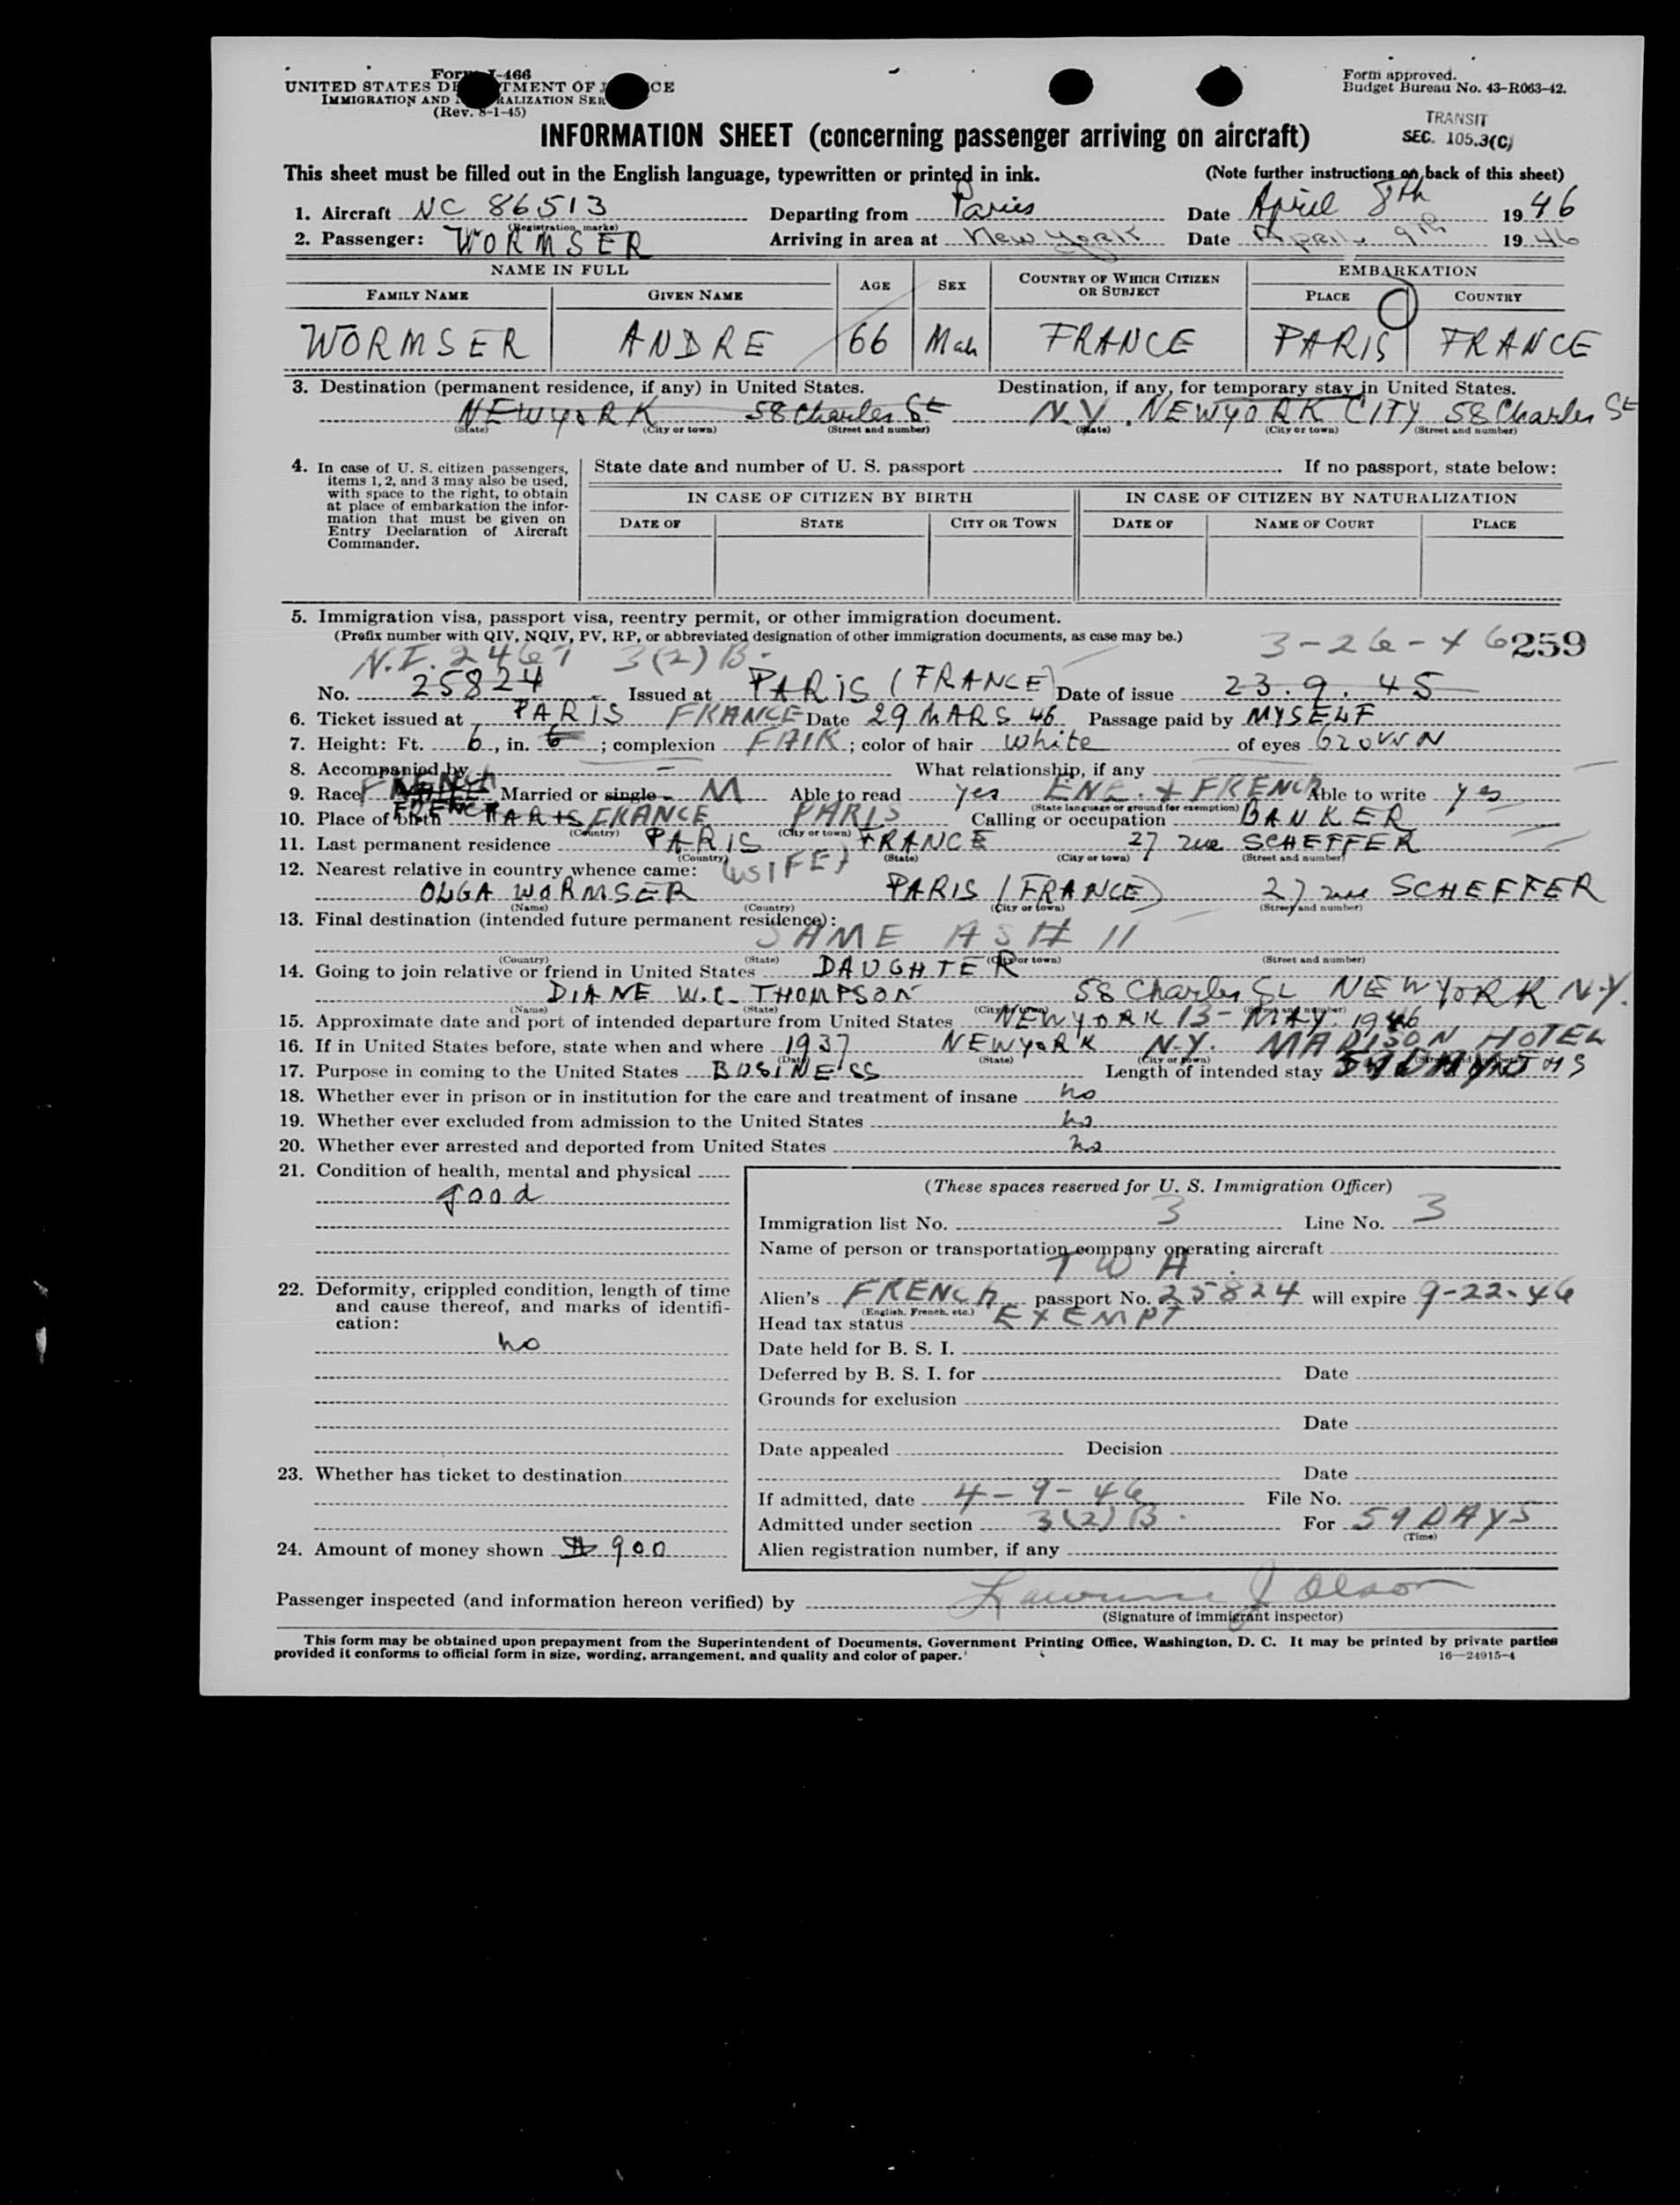 Form I-466
UNITED STATES DEPARTMENT OF JUSTICE
IMMIGRATION AND NATURALIZATION SER
(Rev. 8-1-45)
Form approved.
Budget Bureau No. 43-R063-42.
TRANSIT
SEC. 105.3(C)
INFORMATION SHEET (concerning passenger arriving on aircraft)
This sheet must be filled out in the English language, typewritten or printed in ink. (Note further instructions on back of this sheet)
1. Aircraft NC 86513 Departing from Paris Date April 8th 1946
(Registration marks)
2. Passenger: WORMSER Arriving in area at New York Date April 9th 1946
NAME IN FULL AGE SEX COUNTRY OF WHICH CITIZEN OR SUBJECT EMBARKATION
FAMILY NAME GIVEN NAME PLACE COUNTRY
WORMSER ANDRE 66 Male FRANCE PARIS FRANCE
3. Destination (permanent residence, if any) in United States. Destination, if any, for temporary stay in United States.
NEW YORK 58 Charles St N.Y. NEW YORK CITY 58 Charles St
(State) (City or town) (Street and number) (State) (City or town) (Street and number)
4. In case of U. S. citizen passengers, items 1, 2, and 3 may also be used, with space to the right, to obtain at place of embarkation the information that must be given on Entry Declaration of Aircraft Commander.
State date and number of U. S. passport If no passport, state below:
IN CASE OF CITIZEN BY BIRTH IN CASE OF CITIZEN BY NATURALIZATION
DATE OF STATE CITY OR TOWN DATE OF NAME OF COURT PLACE
5. Immigration visa, passport visa, reentry permit, or other immigration document.
(Prefix number with QIV, NQIV, PV, RP, or abbreviated designation of other immigration documents, as case may be.)
N.I. 2467 3(2)B. 3-26-46 259
No. 25824 Issued at PARIS (FRANCE) Date of issue 23.9.45
6. Ticket issued at PARIS FRANCE Date 29 MARS 46 Passage paid by MYSELF
7. Height: Ft. 6, in. 6; complexion FAIR; color of hair white of eyes BROWN
8. Accompanied by - What relationship, if any
9. Race FRENCH Married or single M Able to read yes ENG. + FRENCH Able to write yes
(State language or ground for exemption)
10. Place of birth FRENCH PARIS FRANCE PARIS Calling or occupation BANKER
(Country) (City or town)
11. Last permanent residence PARIS FRANCE 27 rue SCHEFFER
(Country) (State) (City or town) (Street and number)
12. Nearest relative in country whence came: (WIFE)
OLGA WORMSER PARIS (FRANCE) 27 rue SCHEFFER
(Name) (Country) (City or town) (Street and number)
13. Final destination (intended future permanent residence):
SAME AS # 11
(Country) (State) (City or town) (Street and number)
14. Going to join relative or friend in United States DAUGHTER
DIANE W.C. THOMPSON 58 Charles St NEW YORK N.Y.
(Name) (State) (City or town) (Street and number)
15. Approximate date and port of intended departure from United States NEW YORK 13- MAY. 1946
16. If in United States before, state when and where 1937 NEW YORK N.Y. MADISON HOTEL
(Date) (State) (City or town) (Street and number)
17. Purpose in coming to the United States BUSINESS Length of intended stay MONTHS
18. Whether ever in prison or in institution for the care and treatment of insane no
19. Whether ever excluded from admission to the United States no
20. Whether ever arrested and deported from United States no
21. Condition of health, mental and physical
good
22. Deformity, crippled condition, length of time and cause thereof, and marks of identification:
no
23. Whether has ticket to destination
24. Amount of money shown $ 900
(These spaces reserved for U. S. Immigration Officer)
Immigration list No. 3 Line No. 3
Name of person or transportation company operating aircraft
TWA
Alien's FRENCH passport No. 25824 will expire 9-22-46
(English, French, etc.)
Head tax status EXEMPT
Date held for B. S. I.
Deferred by B. S. I. for Date
Grounds for exclusion
Date
Date appealed Decision
Date
If admitted, date 4-9-46 File No.
Admitted under section 3(2)B. For 59 DAYS
(Time)
Alien registration number, if any
Passenger inspected (and information hereon verified) by Lawrence J Olson
(Signature of immigrant inspector)
This form may be obtained upon prepayment from the Superintendent of Documents, Government Printing Office, Washington, D. C. It may be printed by private parties
provided it conforms to official form in size, wording, arrangement, and quality and color of paper.
16—24915-4